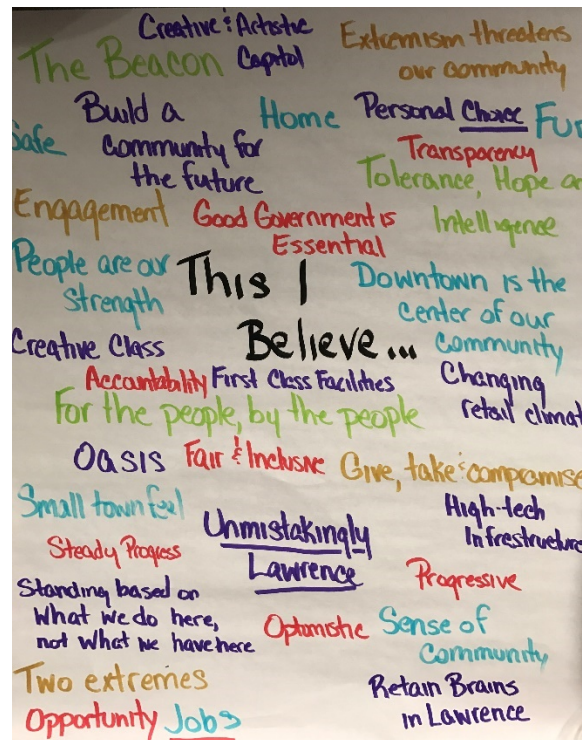 Creative & Artistic
Capitol
The Beacon
Extremism threatens
our community
Build a
community for
the future
Home
Personal Choice
Fun
Safe
Transparency
Tolerance, Hope
Engagement
Good Government is
Essential
Intelligence
People are our
Strength
This I
Believe...
Downtown is the
center of our
community
Creative Class
Accountability
First Class Facilities
Changing
retail climat
For the people, by the people
Oasis
Fair & Inclusive
Give, take & compromise
Small town feel
Unmistakingly
Lawrence
High-tech
Infrestructure
Steady Progress
Progressive
Standing based on
What we do here,
not What we have here
Optomistic
Sense of
Community
Two extremes
Retain Brains
in Lawrence
Opportunity
Jobs